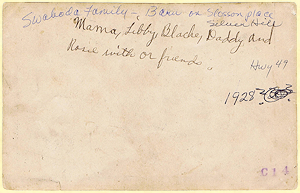 Swaboda family - Barn on Slosson place
Silver Hill
Mama, Libby, Blache, Daddy and
Rosie with or friends.
Hwy 49
1928?
C14